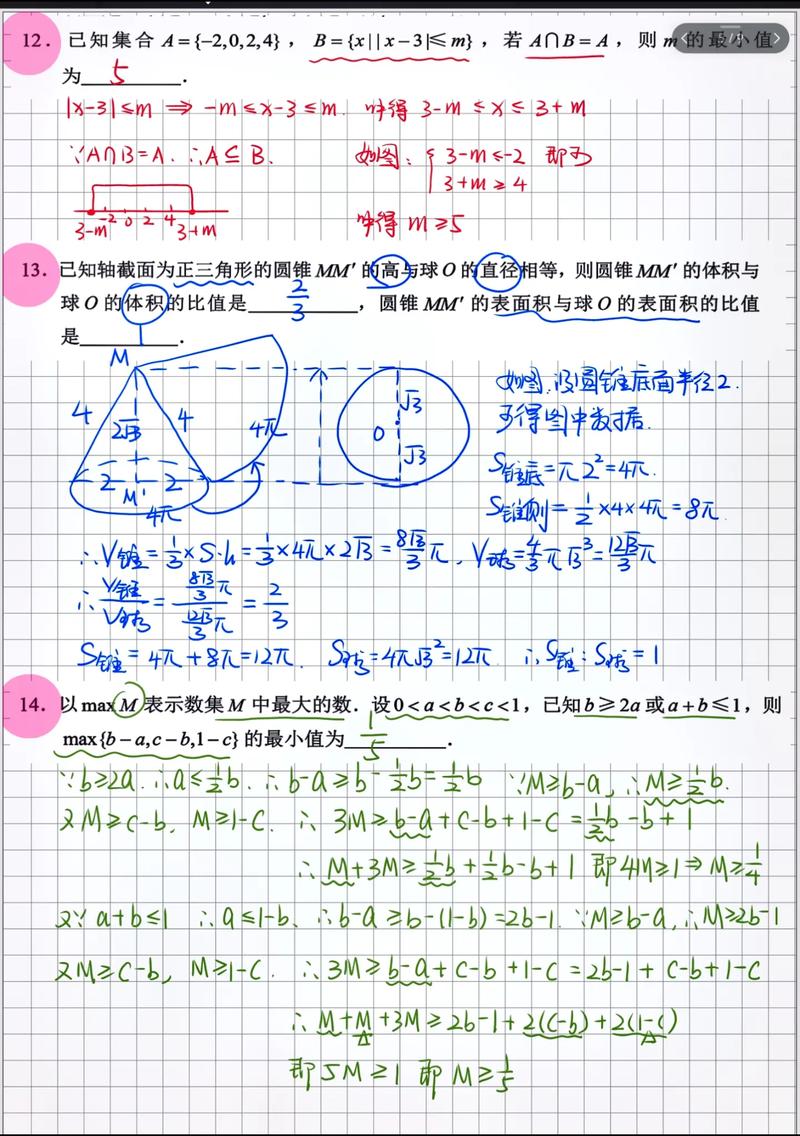 12. 已知集合 A={-2,0,2,4}, B={x||x-3|≤m}, 若 A∩B=A, 则 m 的最小值
为 5 .
|x-3|≤m ⇒ -m≤x-3≤m. 解得 3-m≤x≤3+m
∵A∩B=A. ∴A⊆B. 如图: { 3-m≤-2 即可
3+m≥4
3-m -2 0 2 4 3+m
解得 m≥5
13. 已知轴截面为正三角形的圆锥 MM′ 的高与球 O 的直径相等, 则圆锥 MM′ 的体积与
球 O 的体积的比值是 2/3 , 圆锥 MM′ 的表面积与球 O 的表面积的比值
是 .
M
4 2√3 4 4π
2 M′ 2
4π
O √3
√3
如图, 设圆锥底面半径2.
可得图中数据.
S锥底=π2²=4π.
S锥侧=1/2×4×4π=8π
∴V锥=1/3×S·h=1/3×4π×2√3=8√3/3 π, V球=4/3 π√3³=12√3/3 π
∴ V锥/V球 = (8√3/3 π)/(12√3/3 π) = 2/3
S锥=4π+8π=12π. S球=4π√3²=12π ∴S锥:S球=1
14. 以 max M 表示数集 M 中最大的数. 设 0<a<b<c<1, 已知 b≥2a 或 a+b≤1, 则
max{b-a,c-b,1-c} 的最小值为 1/5 .
∵b≥2a. ∴a≤1/2b. ∴b-a≥b-1/2b=1/2b ∵M≥b-a, ∴M≥1/2b.
又M≥c-b, M≥1-c. ∴ 3M≥b-a+c-b+1-c=1/2b-b+1
∴ M+3M≥1/2b+1/2b-b+1 即4M≥1⇒M≥1/4
又∵a+b≤1 ∴a≤1-b. ∴b-a≥b-(1-b)=2b-1. ∵M≥b-a, ∴M≥2b-1
又M≥c-b, M≥1-c. ∴3M≥b-a+c-b+1-c=2b-1+c-b+1-c
∴ M+M+3M≥2b-1+2(c-b)+2(1-c)
即5M≥1 即M≥1/5